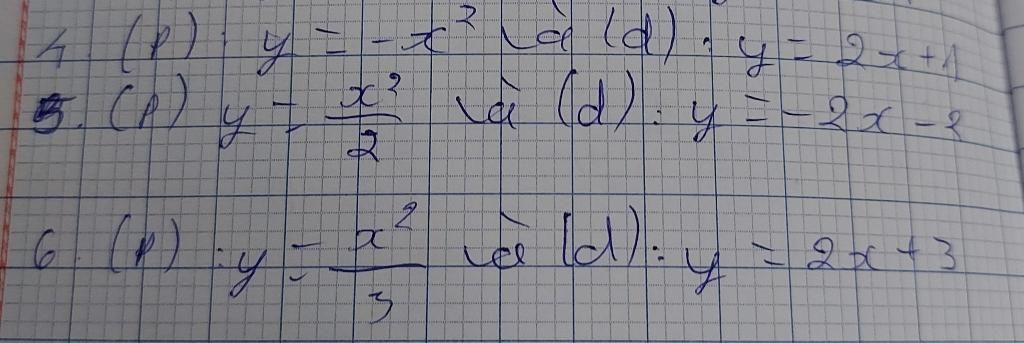 4. (P): y = -x² và (d): y = 2x+1
5. (P) y = x²/2 và (d): y = -2x-2
6. (P): y = x²/3 và (d): y = 2x+3